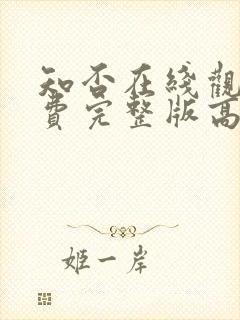 知否在綫觀
費完整版高
姬一岸